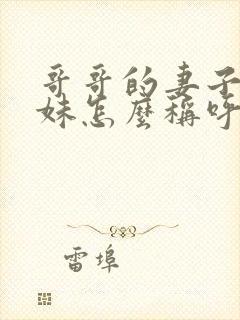 哥哥的妻子
妹怎麼稱呼
雷埠